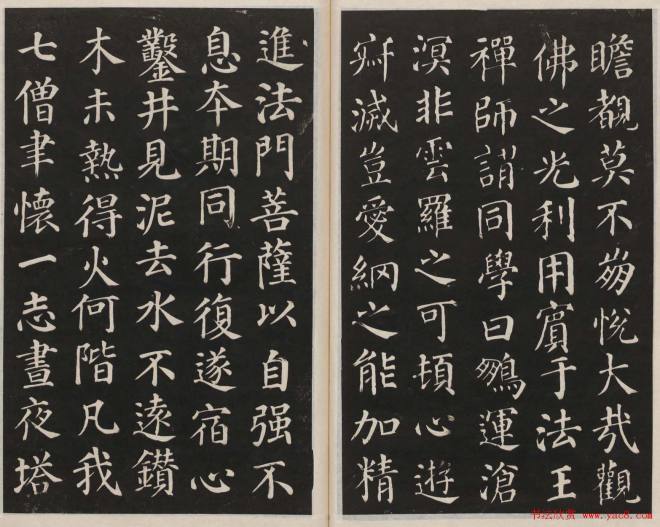 瞻覩莫不蹈悅大哉觀
佛之光利用賓于法王
禪師謂同學曰鵬運滄
溟非雲羅之可頓心遊
寂滅豈愛網之能加精
進法門菩薩以自强不
息夲期同行復遂宿心
鑿井見泥去水不遠鑽
木未熱得火何階凡我
七僧聿懷一志晝夜塔
书法欣赏 www.yac8.com